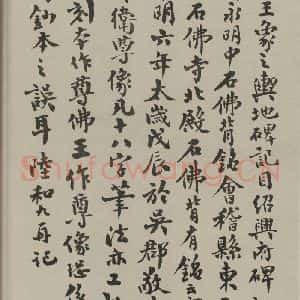 王象之輿地碑記目紹興府碑
永明中石佛背銘會稽縣東
石佛寺北殿石佛背有銘云
明六年太歲戊辰於吳郡敬
衛尊像凡十八字筆法亦工
刻本作尊佛王作尊像恐係
鈔本之誤耳陸和九再記
Shufawang.CN